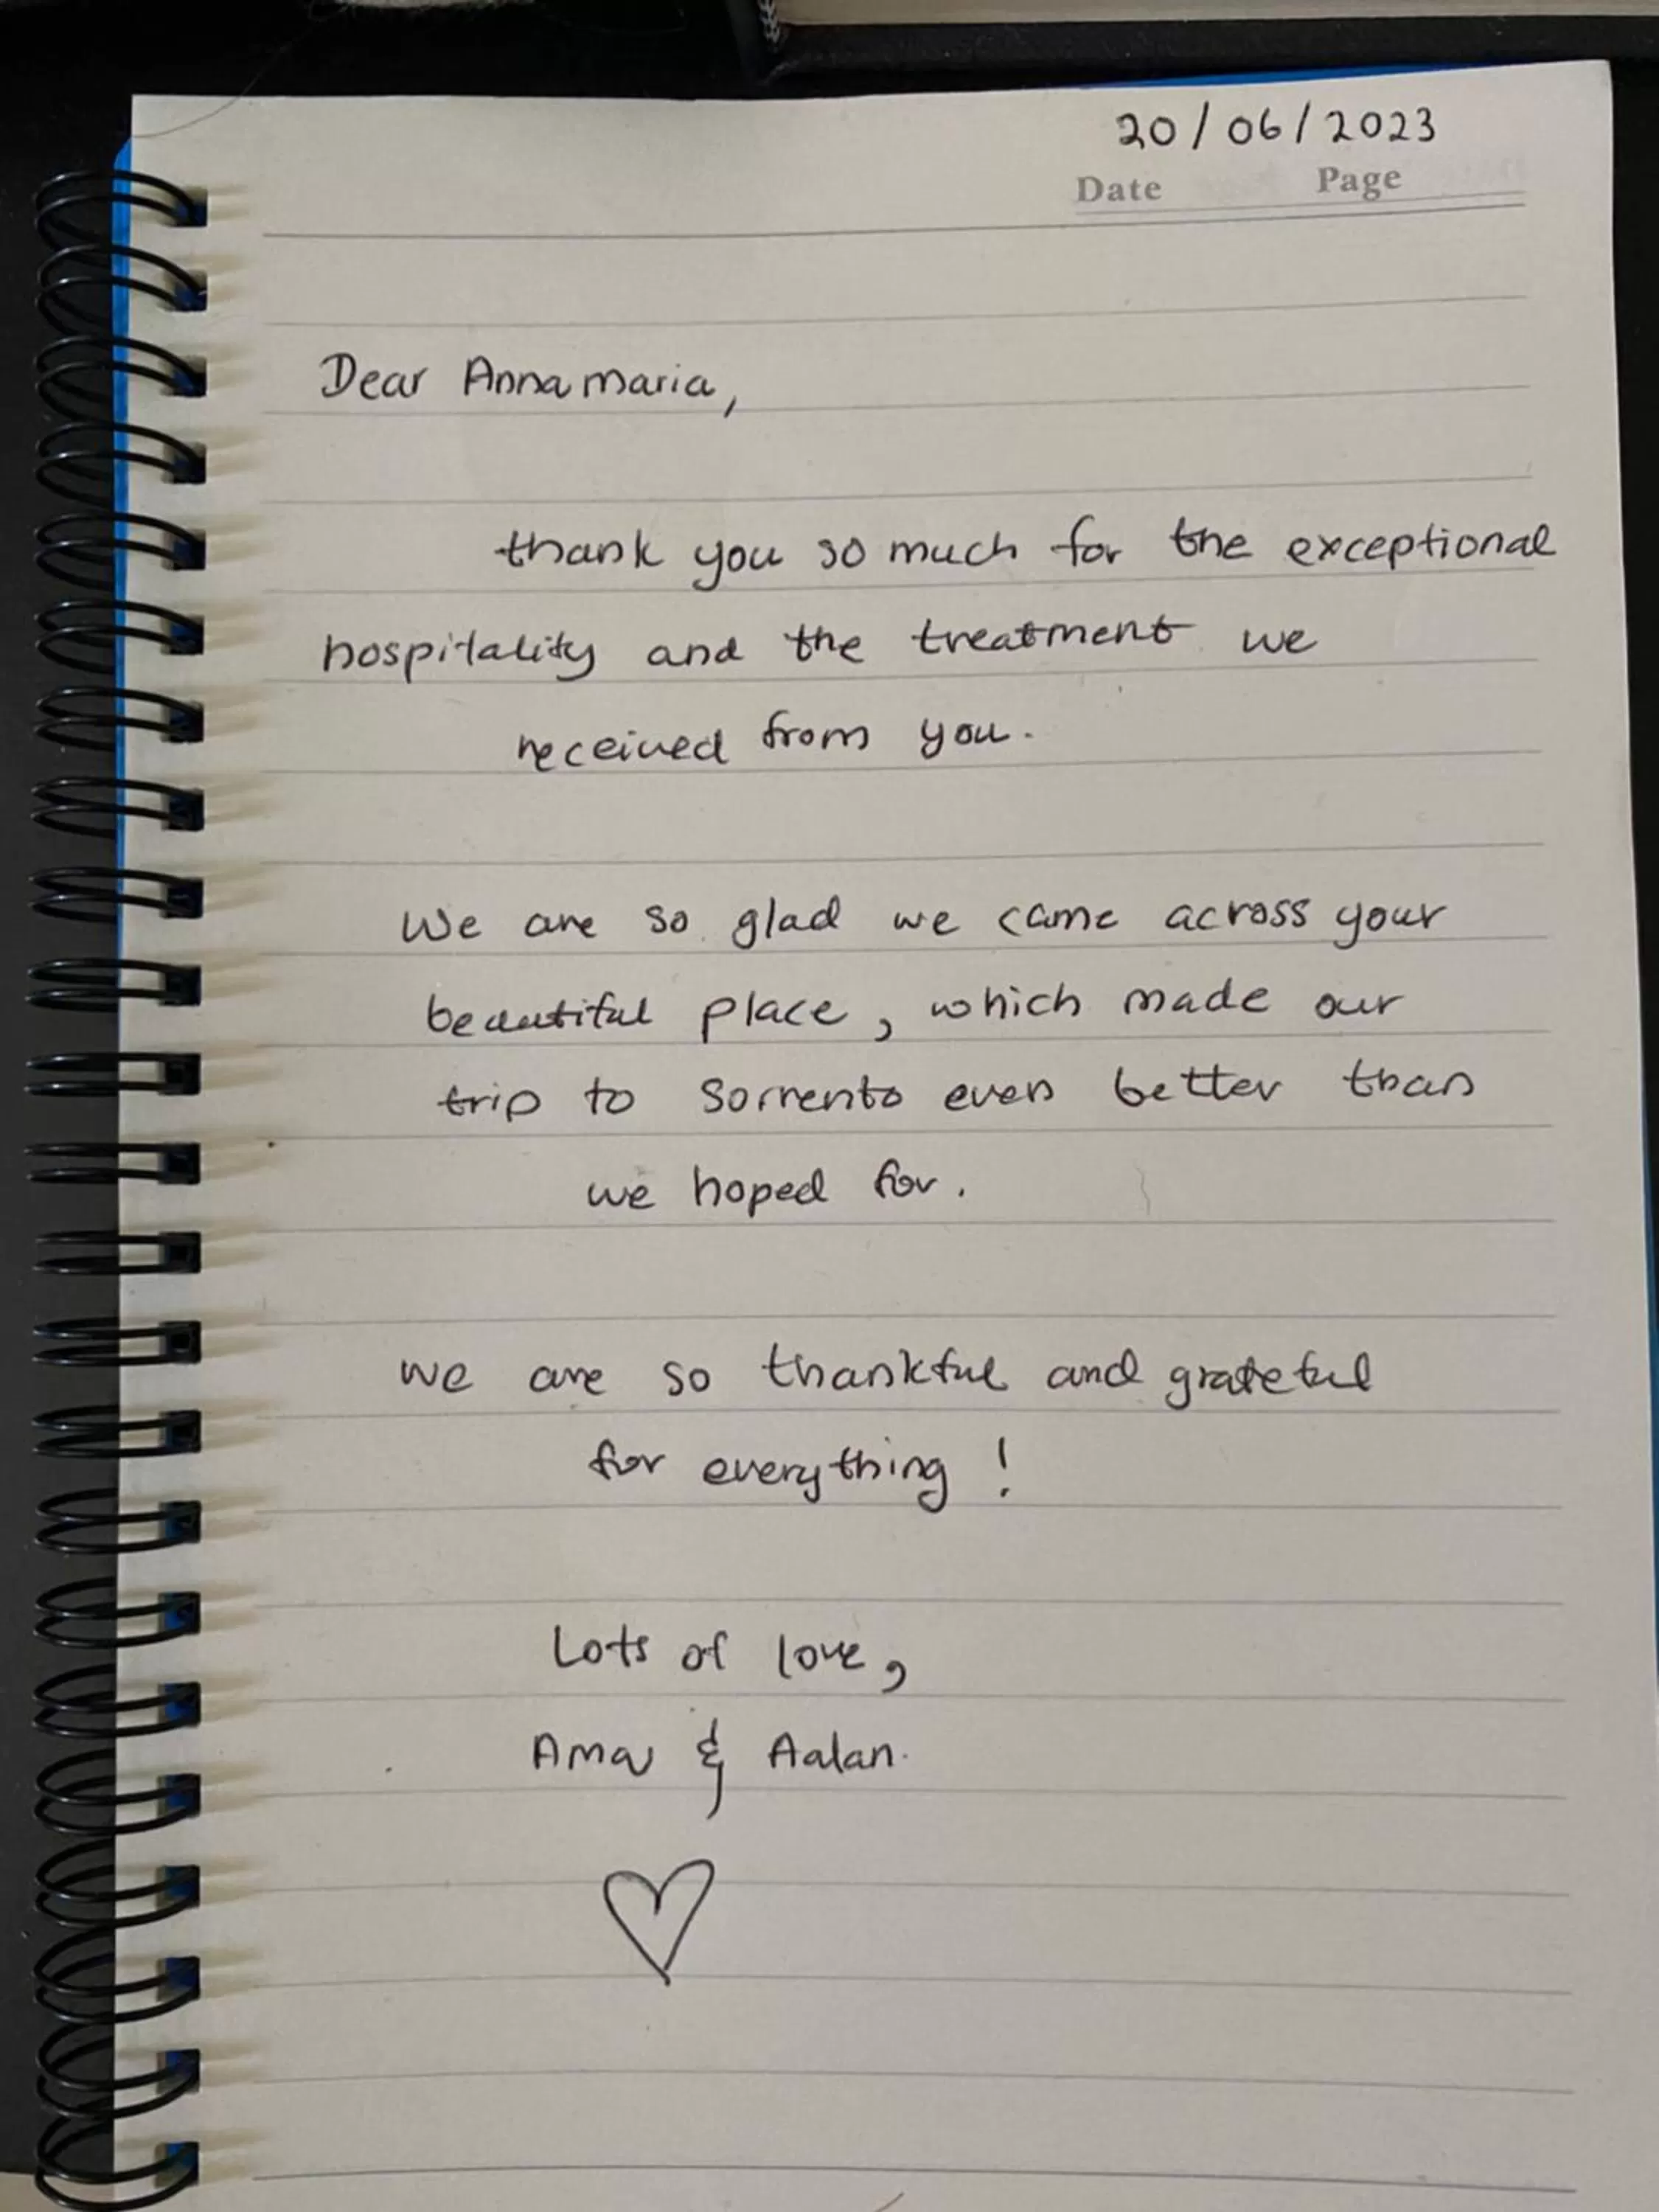 20/06/2023
Date Page
Dear Annamaria,
thank you so much for the exceptional
hospitality and the treatment we
received from you.
We are so glad we came across your
beautiful place, which made our
trip to Sorrento even better than
we hoped for.
we are so thankful and grateful
for everything!
Lots of love,
& Aalan.